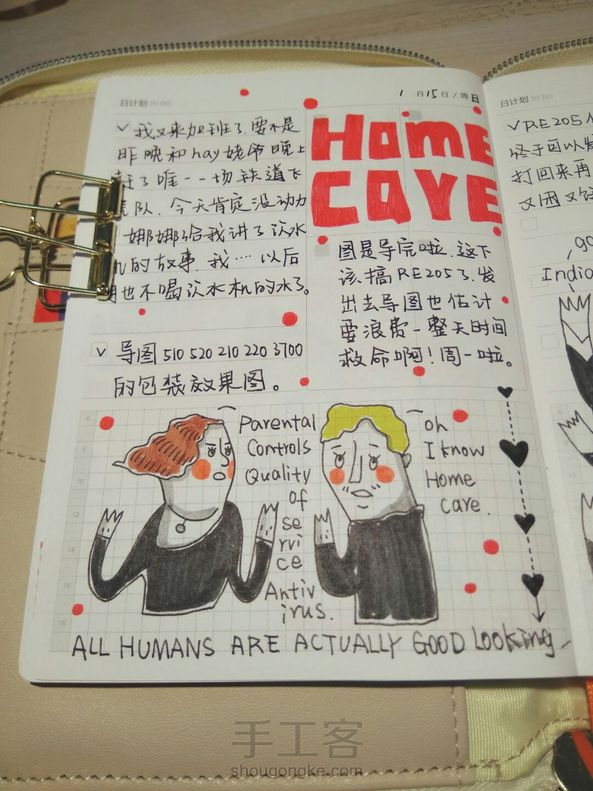 日计划 TO DO
1月15日/周日
✓ 我又来加班了.要不是
昨晚和hay姥爷晚上
赶了唯一一切铁道飞
虎队.今天肯定没动力
娜娜给我讲了饮水
机的故事.我····以后
也不喝饮水机的水了。
✓ 导图 510 520 210 220 3700
的包装效果图。
Home
CAVE
图是导完啦.这下
该搞RE205了.发
出去导图也估计
要浪费一整天时间
救命啊!周一啦。
Parental
Controls
Quality
of
se
rvi
ce
Antiv
irus.
oh
I know
Home
care.
ALL HUMANS ARE ACTUALLY GOOD Looking
日计划 TO DO
✓RE205
终于可以
打回来再
又困又
go
India
手工客
shougongke.com